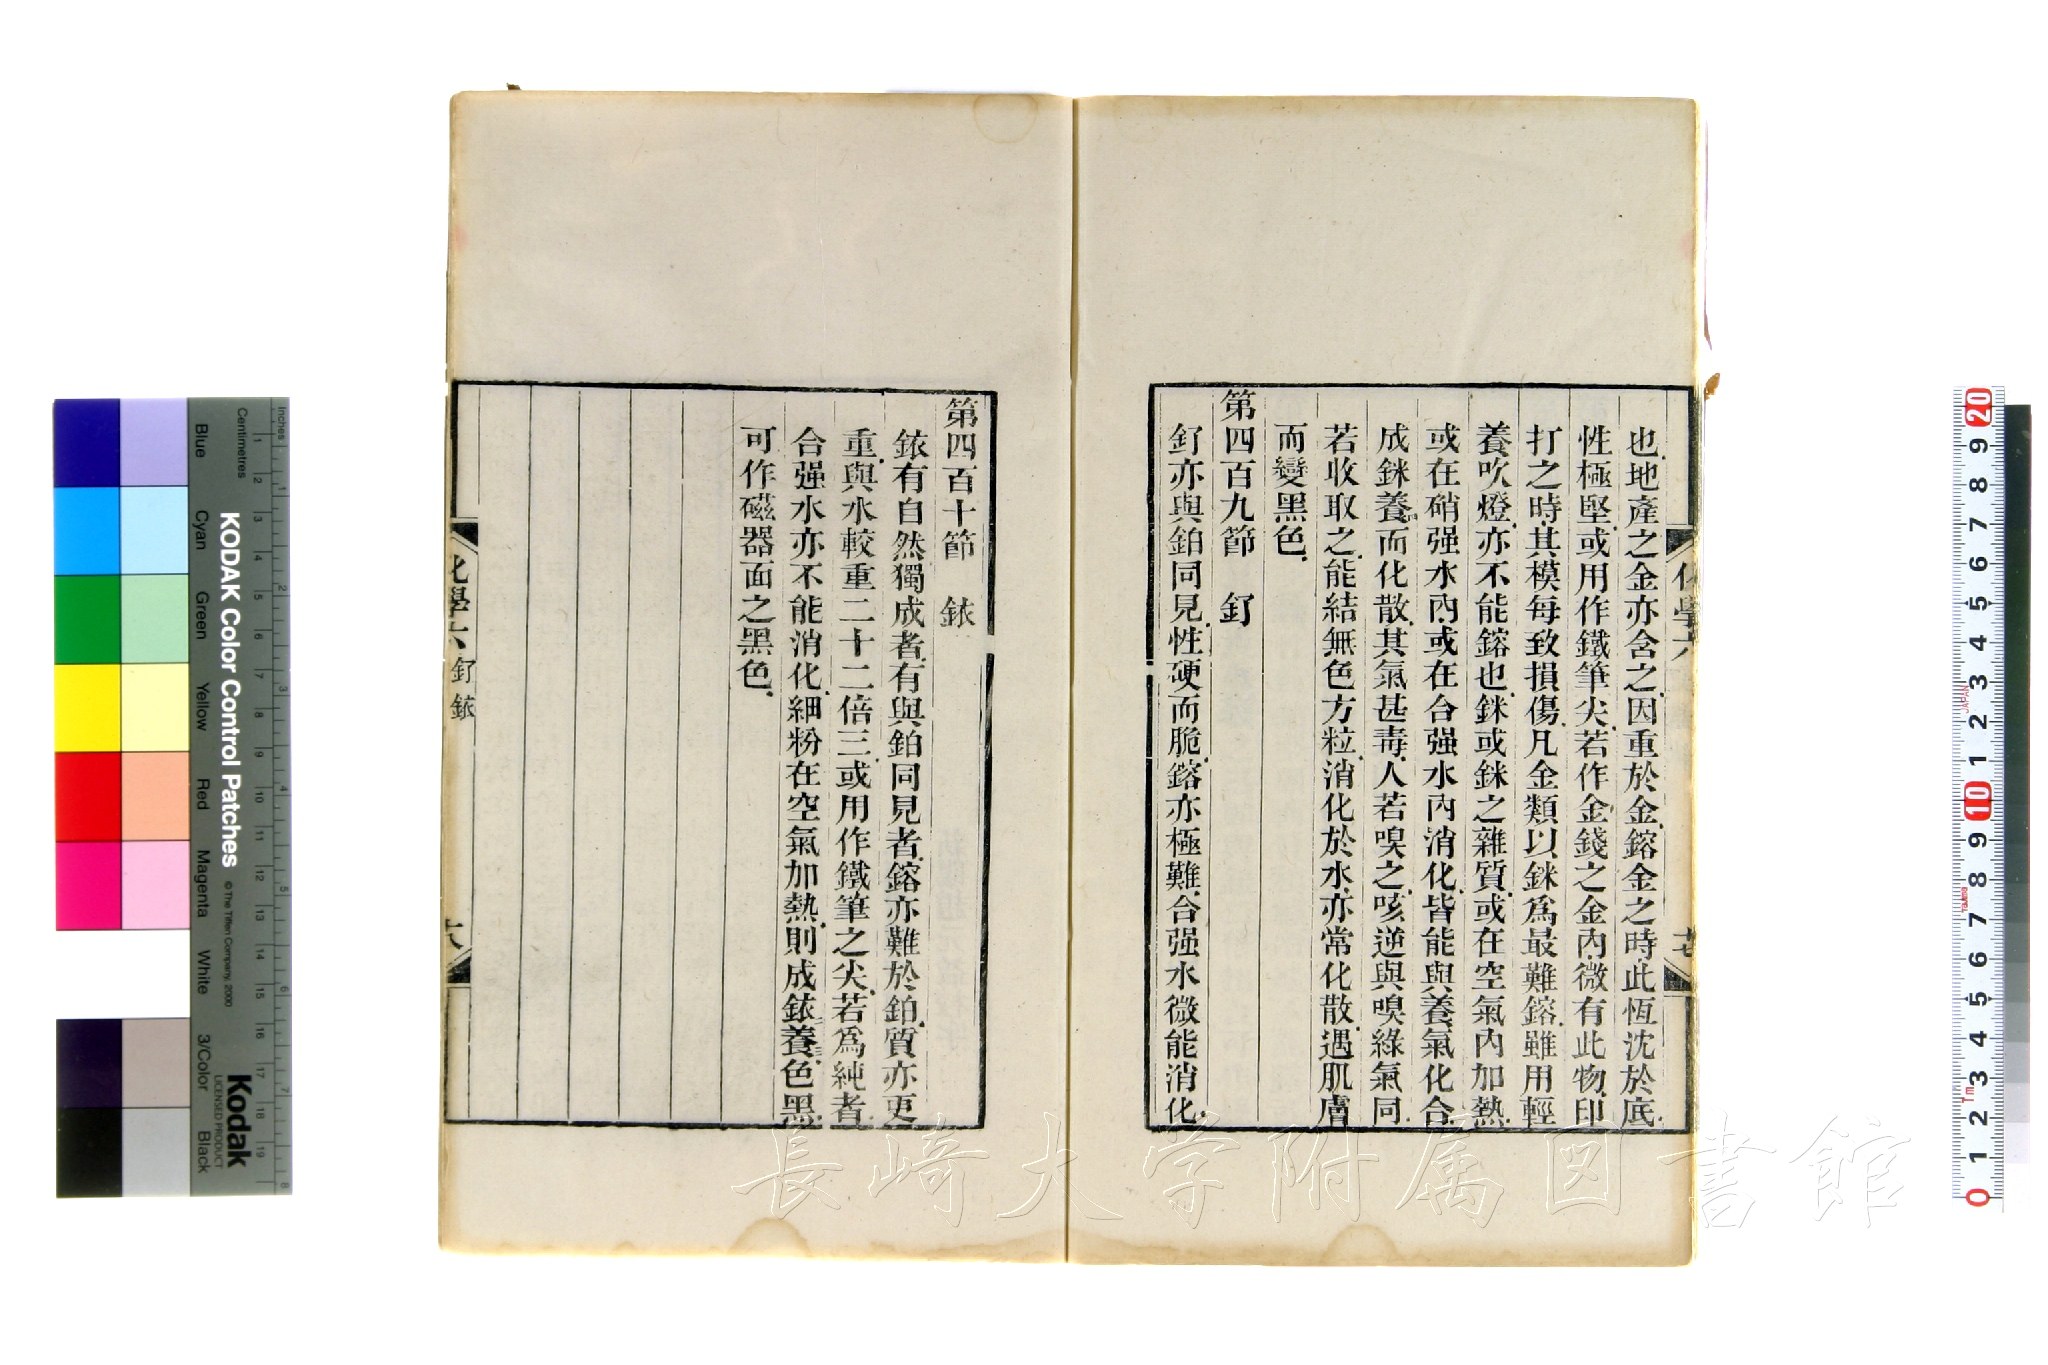 也.地產之金亦含之.因重於金.鎔金之時.此恆沈於底.
性極堅.或用作鐵筆尖.若作金錢之金內.微有此物.印
打之時.其模每致損傷.凡金類以鉌爲最難鎔.雖用輕
養吹燈.亦不能鎔也.鉌或鉌之雜質.或在空氣內加熱.
或在硝强水內.或在合强水內消化.皆能與養氣化合.
成鉌養.而化散.其氣甚毒.人若嗅之.咳逆與嗅綠氣同.
若收取之.能結無色方粒.消化於水.亦常化散.遇肌膚
而變黑色.
第四百九節 釕
釕亦與鉑同見.性硬而脆.鎔亦極難.合强水微能消化.
化學六
第四百十節 銥
銥有自然獨成者.有與鉑同見者.鎔亦難於鉑.質亦更
重.與水較重二十二倍三.或用作鐵筆之尖.若爲純者.
合强水亦不能消化.細粉在空氣加熱.則成銥養.色黑.
可作磁器面之黑色.
化學六 釕 銥
長崎大学附属図書館
KODAK Color Control Patches
© The Tiffen Company, 2000
Kodak
LICENSED PRODUCT
Inches 1 2 3 4 5 6 7 8
Centimetres 1 2 3 4 5 6 7 8 9 10 11 12 13 14 15 16 17 18 19
Blue Cyan Green Yellow Red Magenta White 3/Color Black
20 9 8 7 6 5 4 3 2 1 10 9 8 7 6 5 4 3 2 1 0
JAPAN